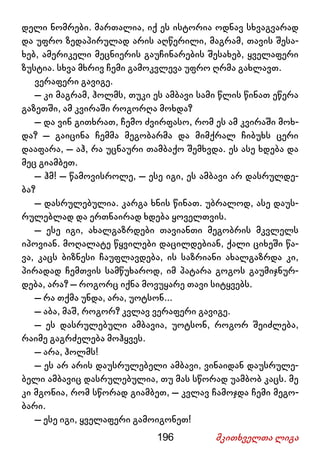 დელი ნომრები. მართალია, იქ ეს ისტორია ოდნავ სხვაგვარად
და უფრო ზედაპირულად არის აღწერილი, მაგრამ, თავის შესა-
ხებ, ამერიკელი მეცნიერის გაუჩინარების შესახებ, ყველაფერი
ზუსტია. სხვა მხრივ ჩემი გამოკვლევა უფრო ღრმა გახლავთ.
ვერაფერი გავიგე.
— კი მაგრამ, ჰოლმს, თუკი ეს ამბავი სამი წლის წინათ ეწერა
გაზეთში, ამ კვირაში როგორღა მოხდა?
— და ვინ გითხრათ, ჩემო ძვირფასო, რომ ეს ამ კვირაში მოხ-
და? — გაიცინა ჩემმა მეგობარმა და მიმქრალ ჩიბუხს ცერი
დააფარა, — აჰ, რა უცნაური თამბაქო შემხვდა. ეს ასე ხდება და
მეც გიამბეთ.
— ჰმ! — წამოვისროლე, — ესე იგი, ეს ამბავი არ დასრულდე-
ბა?
— დასრულებულია. კარგა ხნის წინათ. უბრალოდ, ასე დაუს-
რულებლად და ერთნაირად ხდება ყოველთვის.
— ესე იგი, ახალგაზრდები თავიანთი მეგობრის მკვლელს
იპოვიან. მოღალატე წყვილები დაცილდებიან, ქალი ციხეში წა-
ვა, კაცს ბიზნესი ჩაუფლავდება, ის საზრიანი ახალგაზრდა კი,
პირადად ჩემთვის სამწუხაროდ, იმ პატარა გოგოს გაუმიჯნურ-
დება, არა? — როგორც იქნა მოვუყარე თავი სიტყვებს.
— რა თქმა უნდა, არა, უოტსონ...
— აბა, მაშ, როგორ? კვლავ ვერაფერი გავიგე.
— ეს დასრულებული ამბავია, უოტსონ, როგორ შეიძლება,
რაიმე გაგრძელება მოჰყვეს.
— არა, ჰოლმს!
— ეს არ არის დაუსრულებელი ამბავი, ვინაიდან დაუსრულე-
ბელი ამბავიც დასრულებულია, თუ მას სწორად უამბობ კაცს. მე
კი მგონია, რომ სწორად გიამბეთ, — კვლავ ჩამოჯდა ჩემი მეგო-
ბარი.
— ესე იგი, ყველაფერი გამოიგონეთ!
196 მკითხველთა ლიგა